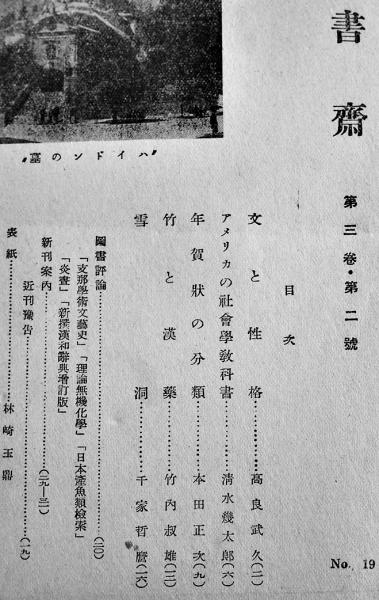 書齋
第三卷・第二號
No. 19
目次
文と性格…………高良武久(二)
アメリカの社會學敎科書………清水幾太郞(六)
年賀狀の分類…………本田正次(九)
竹と漢藥…………竹內叔雄(一二)
雪洞…………千家哲麿(一六)
圖書評論…………(二〇)
「支那學術文藝史」「理論無機化學」「日本產魚類檢索」
「炎晝」「新撰漢和辭典增訂版」
新刊案內…………(二九―三二)
近刊豫告…………(一九)
表紙…………林崎玉鼎
"ハイドンの墓"